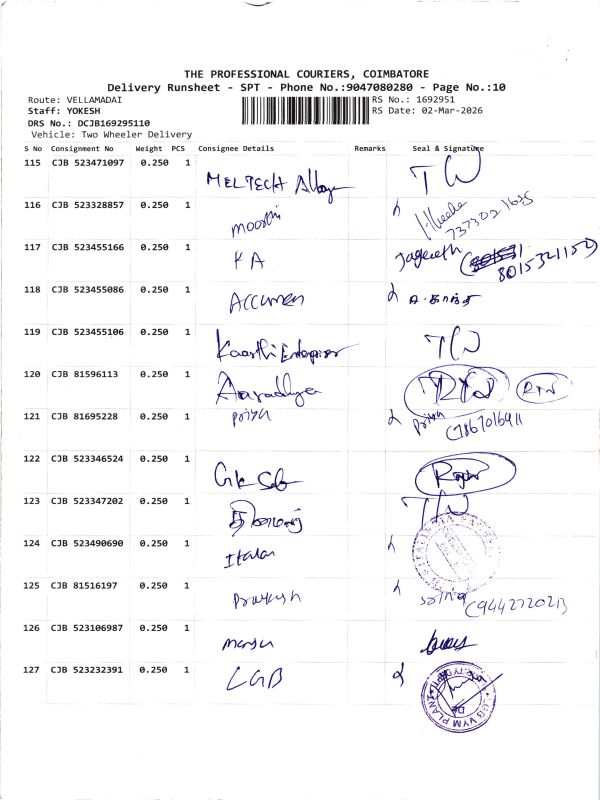 THE PROFESSIONAL COURIERS, COIMBATORE
Delivery Runsheet - SPT - Phone No.:9047080280 - Page No.:10
Route: VELLAMADAI RS No.: 1692951
Staff: YOKESH RS Date: 02-Mar-2026
DRS No.: DCJB169295110
Vehicle: Two Wheeler Delivery
S No Consignment No Weight PCS Consignee Details Remarks Seal & Signature
115 CJB 523471097 0.250 1 MELTECH Alloys TW
116 CJB 523328857 0.250 1 moorthi 7373021635
117 CJB 523455166 0.250 1 KA Jaganath 8015321152
118 CJB 523455086 0.250 1 ACCUMEN
119 CJB 523455106 0.250 1 Kaarthi Enterprises TW
120 CJB 81596113 0.250 1 Aaradhya RTW
121 CJB 81695228 0.250 1 priya priya
122 CJB 523346524 0.250 1
123 CJB 523347202 0.250 1 TW
124 CJB 523490690 0.250 1
125 CJB 81516197 0.250 1 Prakash
126 CJB 523106987 0.250 1
127 CJB 523232391 0.250 1 LGB